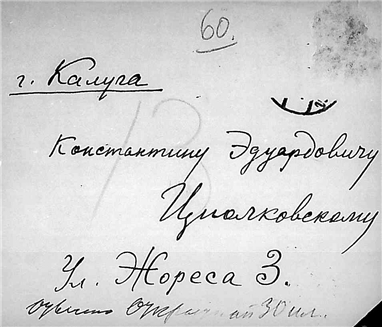 60.
г. Калуга
13
Константину Эдуардовичу
Циолковскому
Ул. Жореса 3.
30